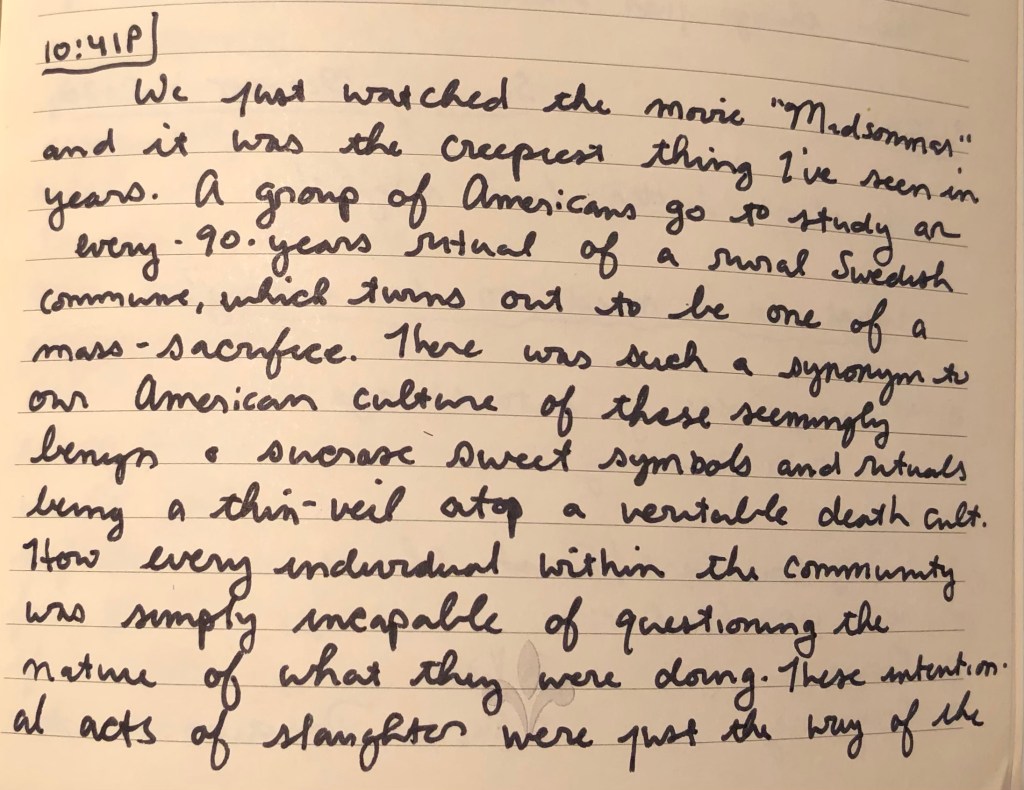 10:41P
We just watched the movie "Midsommar"
and it was the creepiest thing I've seen in
years. A group of Americans go to study an
every-90-years ritual of a rural Swedish
commune, which turns out to be one of a
mass-sacrifice. There was such a synonym to
our American culture of these seemingly
benign & sucrose sweet symbols and rituals
being a thin-veil atop a veritable death cult.
How every individual within the community
was simply incapable of questioning the
nature of what they were doing. These intention-
al acts of slaughter were just the way of the